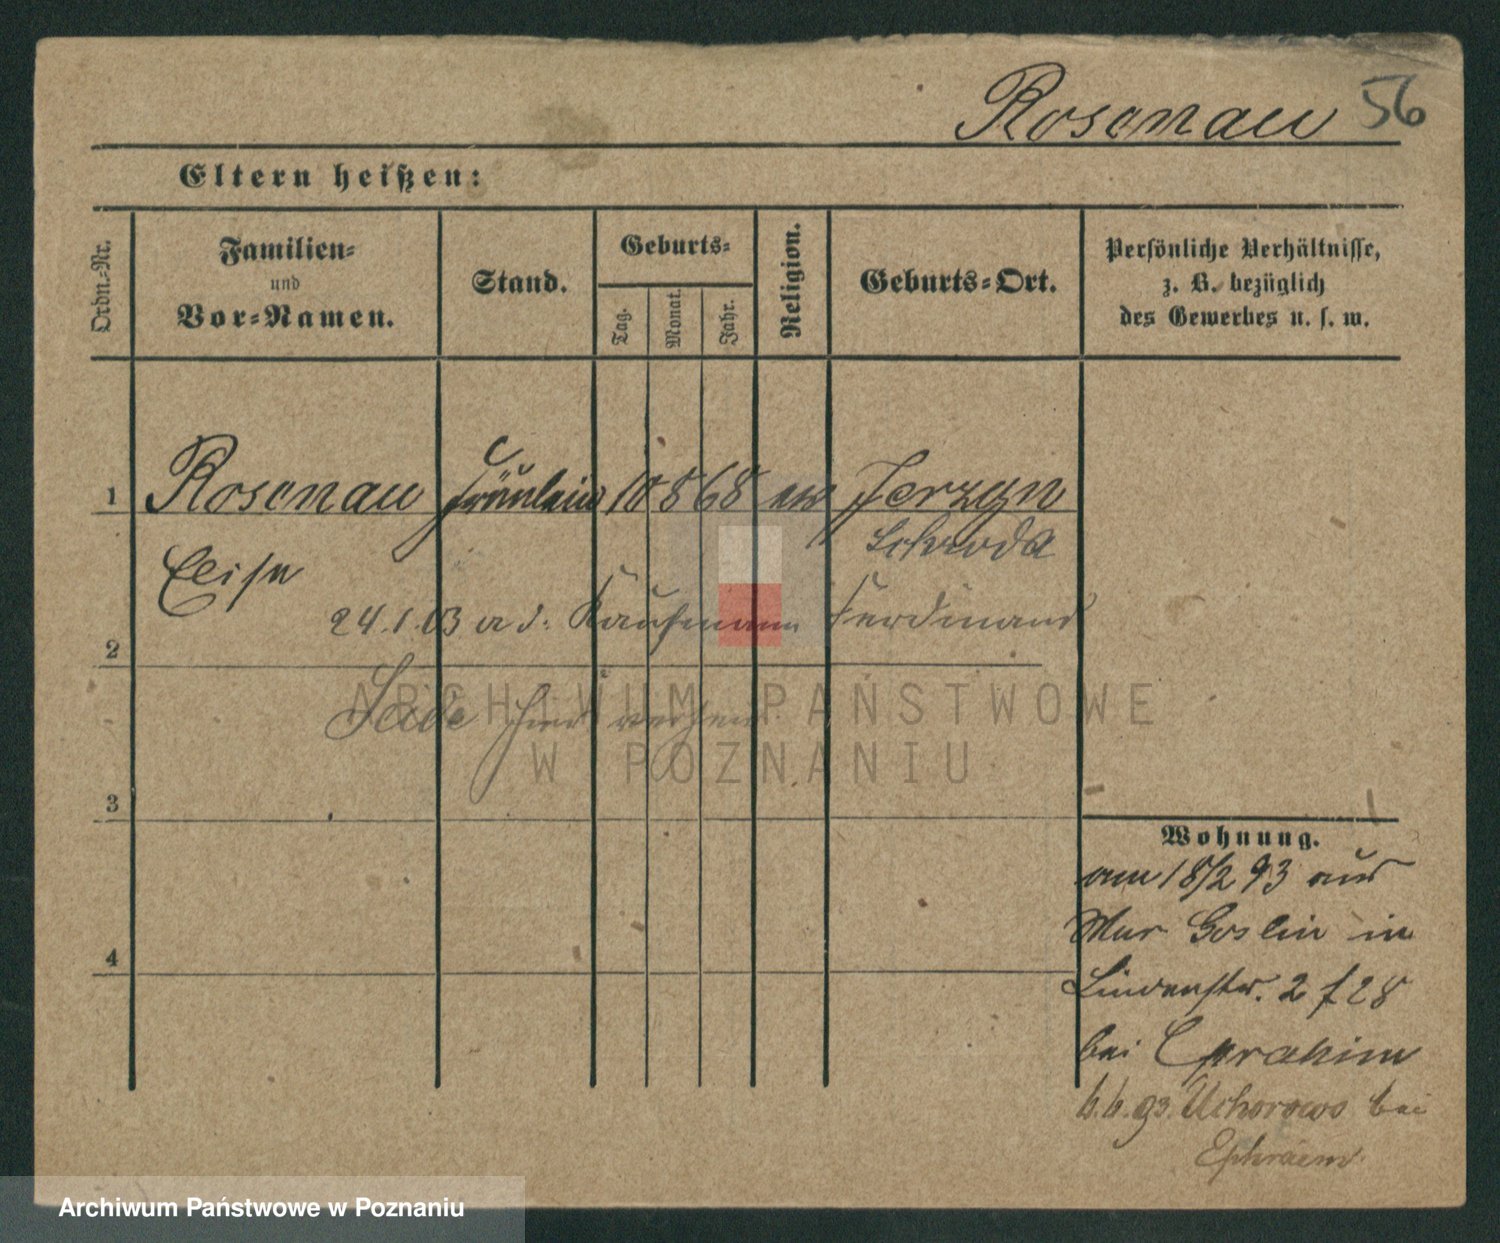 Rosenau 56
Eltern heißen:
Ordn.-Nr.
Familien-
und
Vor-Namen.
Stand.
Geburts-
Tag.
Monat.
Jahr.
Religion.
Geburts-Ort.
Persönliche Verhältnisse,
z. B. bezüglich
des Gewerbes u. s. w.
1 Rosenau Fräulein 10 8 68 Jerzyn
Schroda
24.1.03 Kaufmann Ferdinand
2
ARCHIWUM PAŃSTWOWE
W POZNANIU
3
Wohnung.
am 18/2 93 aus
Mur Goslin in
4
Lindenstr. 2 f 28
bei Ephraim
6.6.93. Uchorowo bei
Ephraim
Archiwum Państwowe w Poznaniu